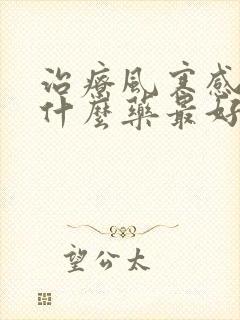 治療風寒感
什麼藥最好
望公太